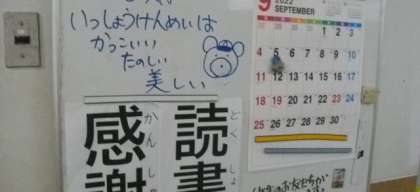 いっしょうけんめいは
かっこいい
たのしい
美しい
9 2022
SEPTEMBER
1 2 3
4 5 6 7 8 9 10
11 12 13 14 15 16 17
18 19 20 21 22 23 24
25 26 27 28 29 30
読書
どくしょ
感謝
かんしゃ